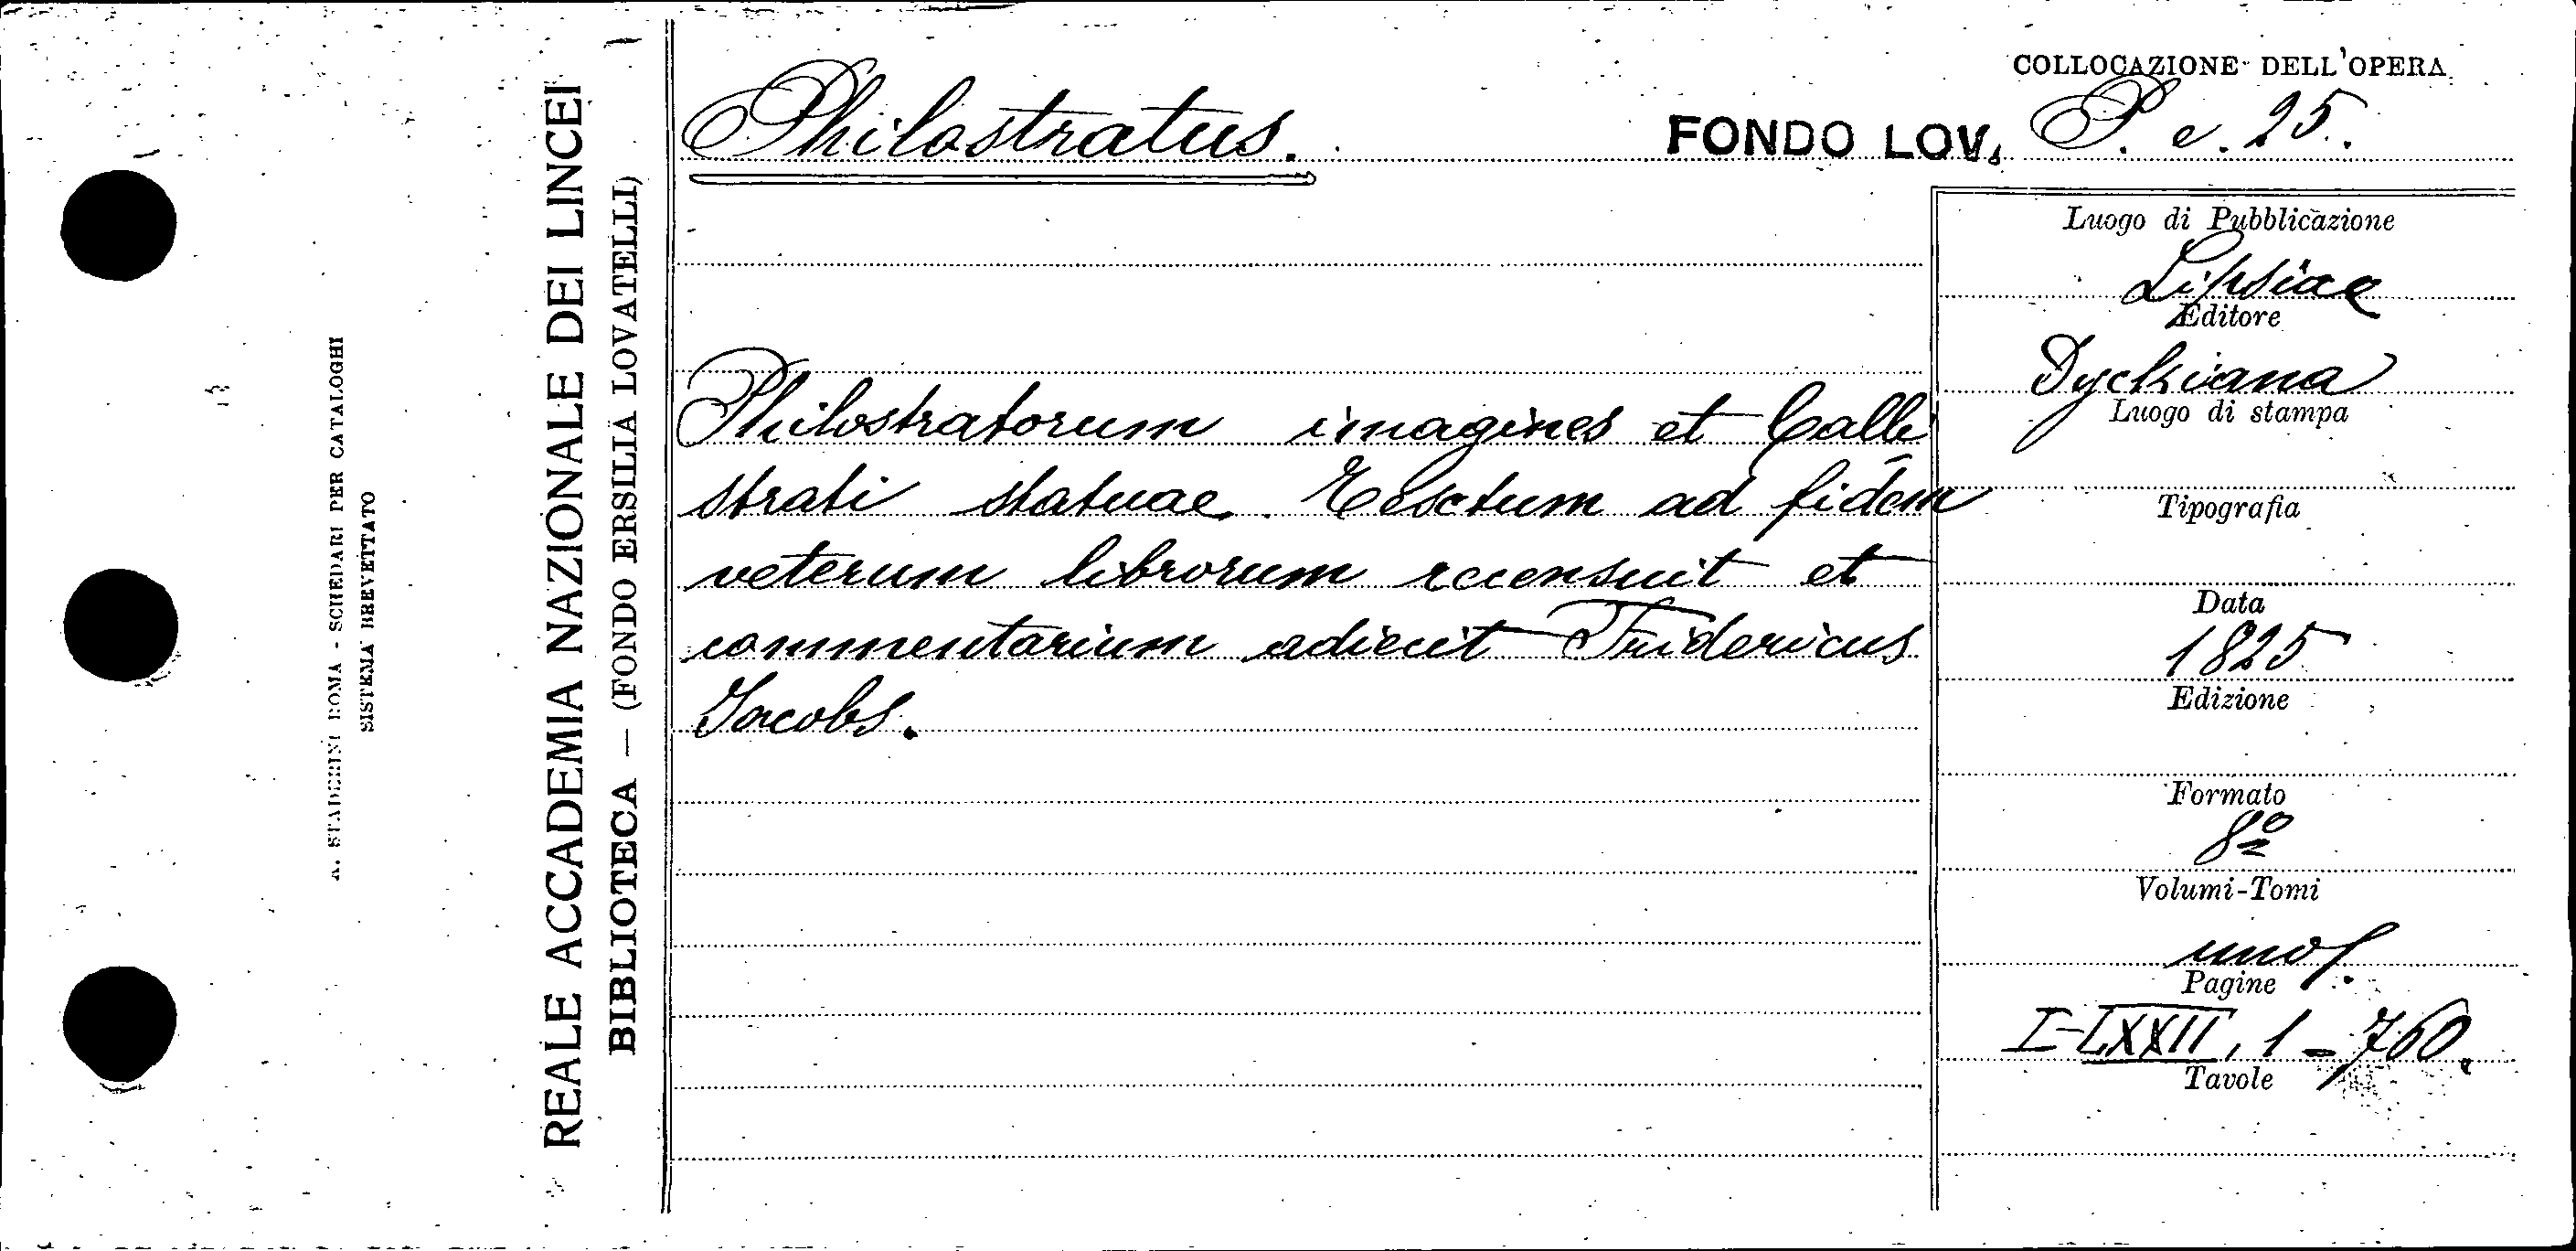 COLLOCAZIONE DELL'OPERA
Philostratus.
FONDO LOV. P. e. 25.
Philostratorum imagines et Calli
strati statuae. Textum ad fidem
veterum librorum recensuit et
commentarium adiecit Fridericus
Jacobs.
Luogo di Pubblicazione
Lipsiae
Editore
Dyckiana
Luogo di stampa
Tipografia
Data
1825
Edizione
Formato
8º
Volumi-Tomi
uno
Pagine
I-LXXII, 1-760.
Tavole
REALE ACCADEMIA NAZIONALE DEI LINCEI
BIBLIOTECA — (FONDO ERSILIA LOVATELLI)
A. STADERINI ROMA - SCHEDARI PER CATALOGHI
SISTEMA BREVETTATO